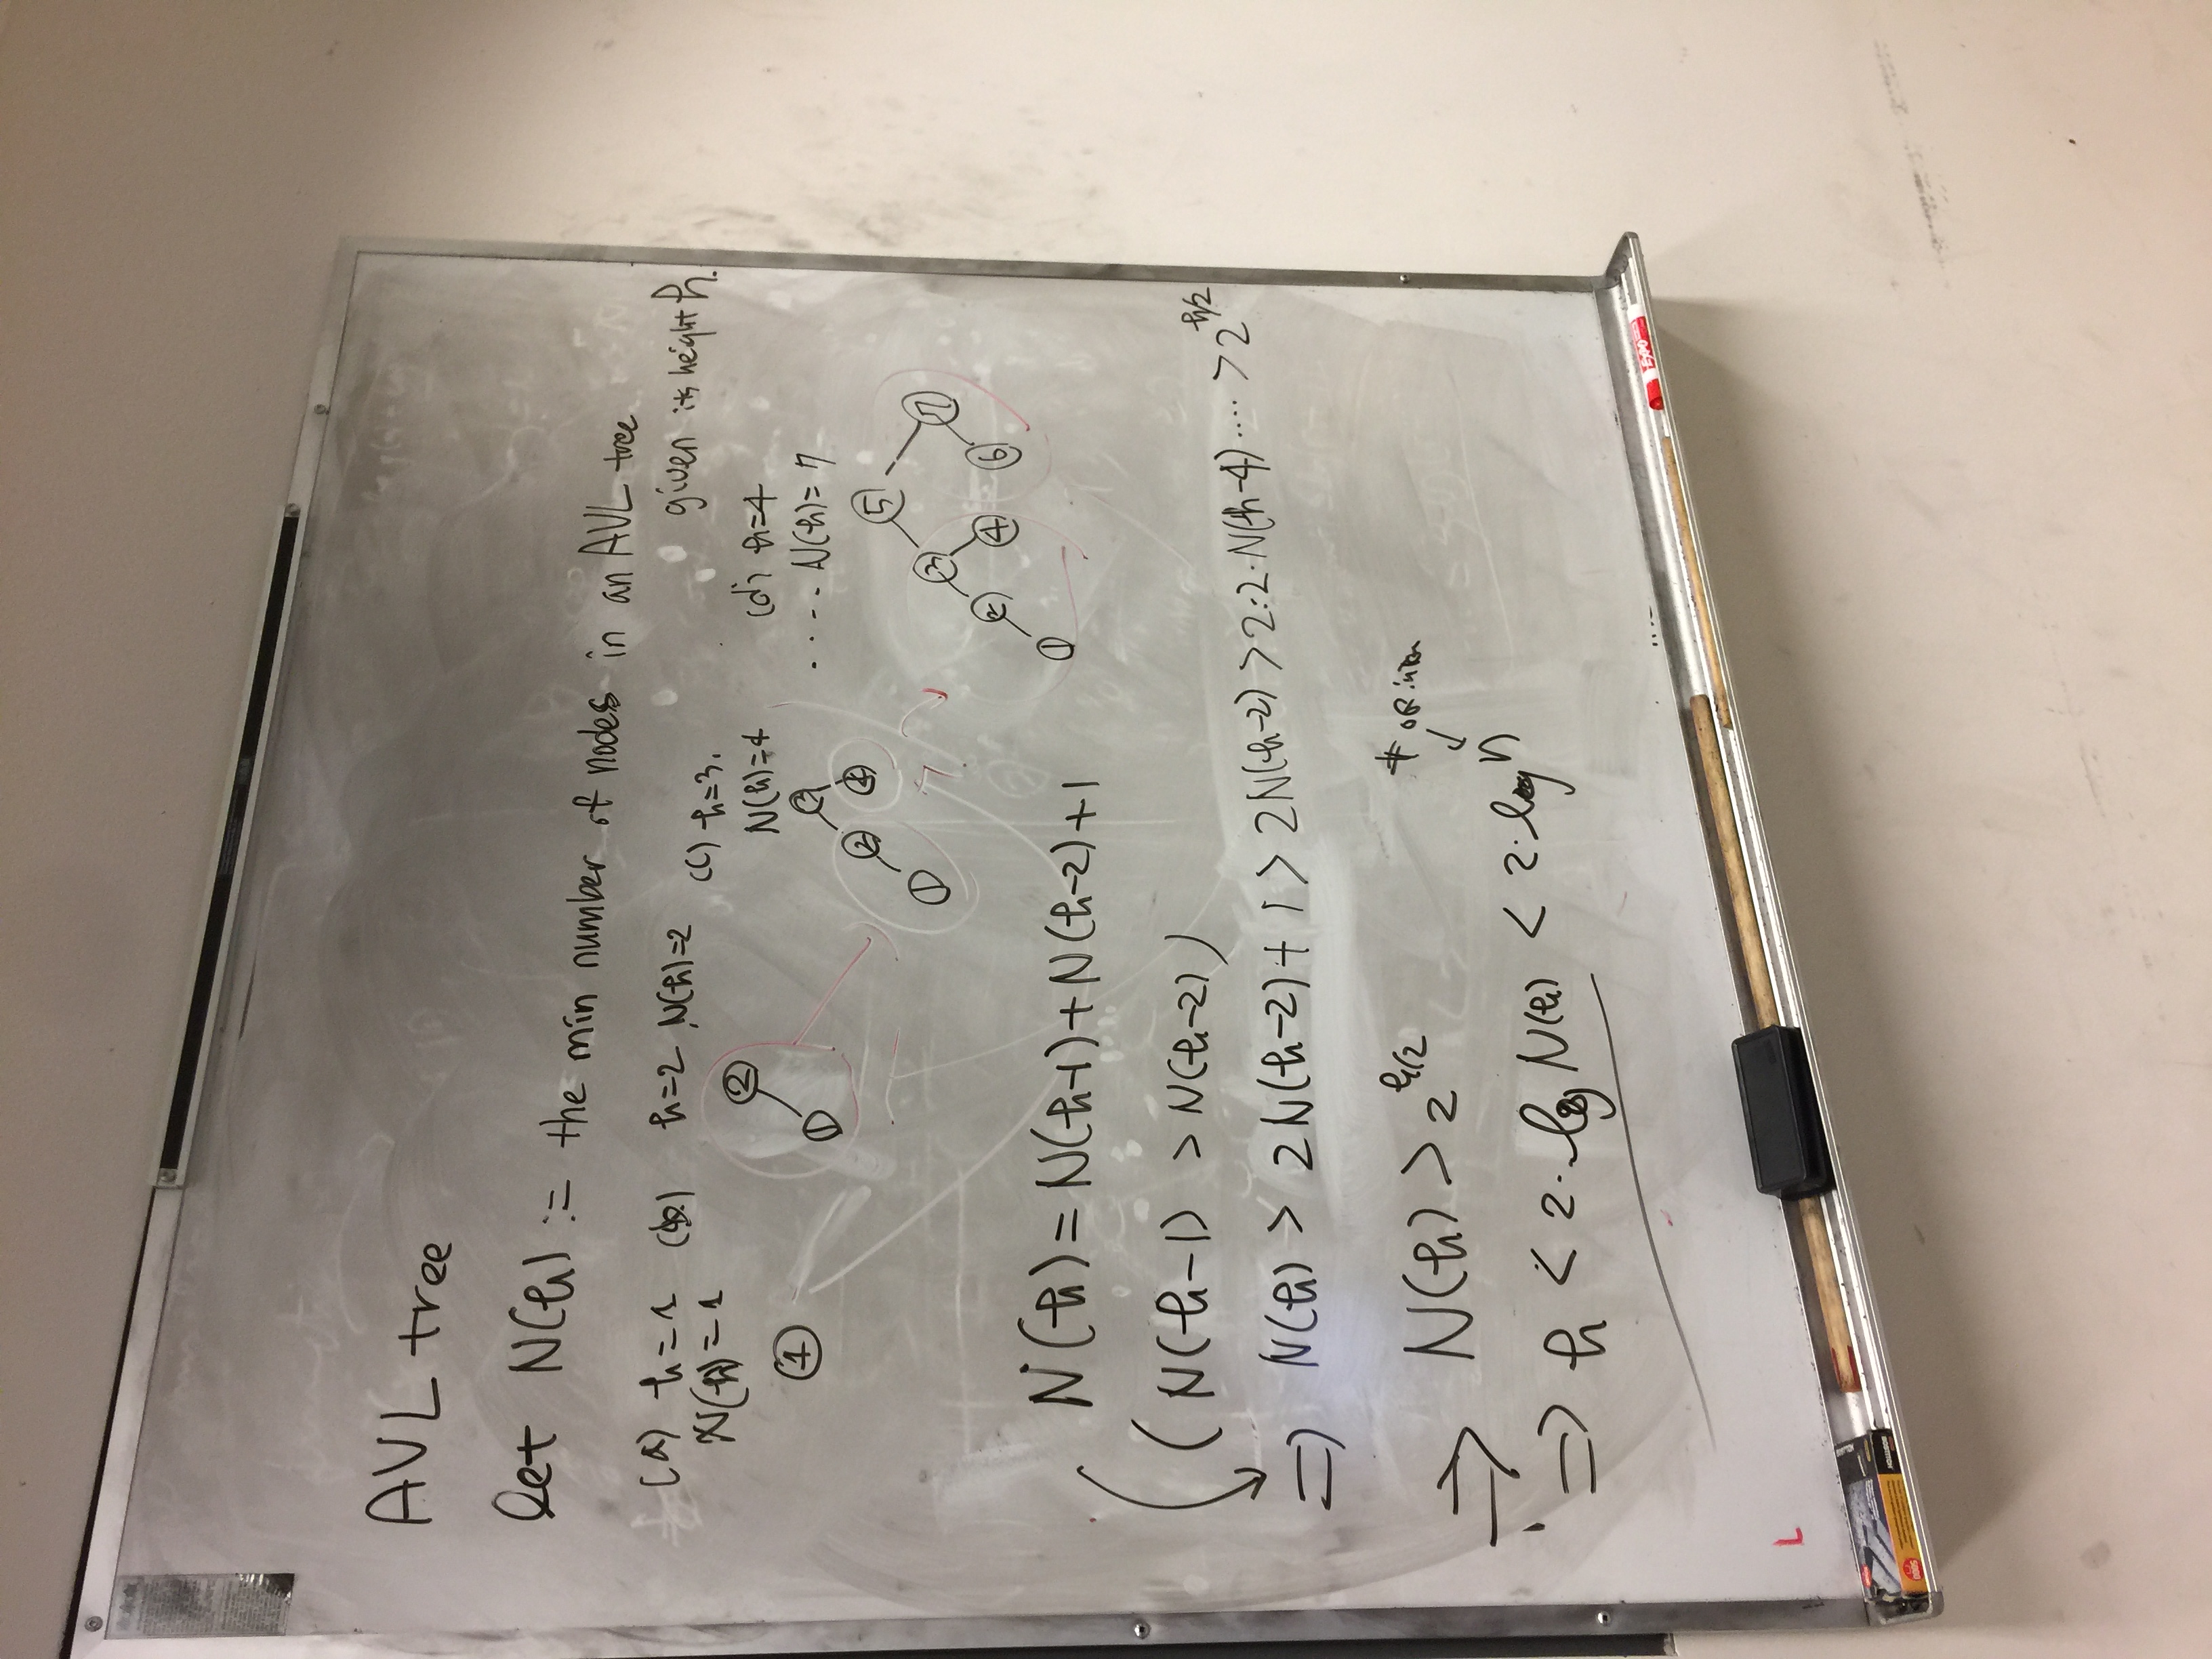 AVL tree
let N(h) := the min number of nodes in an AVL tree
given its height h.
(a) h=1
N(h)=1
1
(b) h=2, N(h)=2
2
1
(c) h=3.
N(h)=4
3
2 4
1
(d) h=4
.... N(h)=7
5
3 7
2 4 6
1
N(h)=N(h-1)+N(h-2)+1
(N(h-1) >N(h-2))
=> N(h) > 2N(h-2)+1 > 2N(h-2) >2·2·N(h-4)···· >2^h/2
=> N(h) >2^h/2
# of
=> h < 2·log N(h) < 2·log n
L
EXPO
BOSTITCH
5000